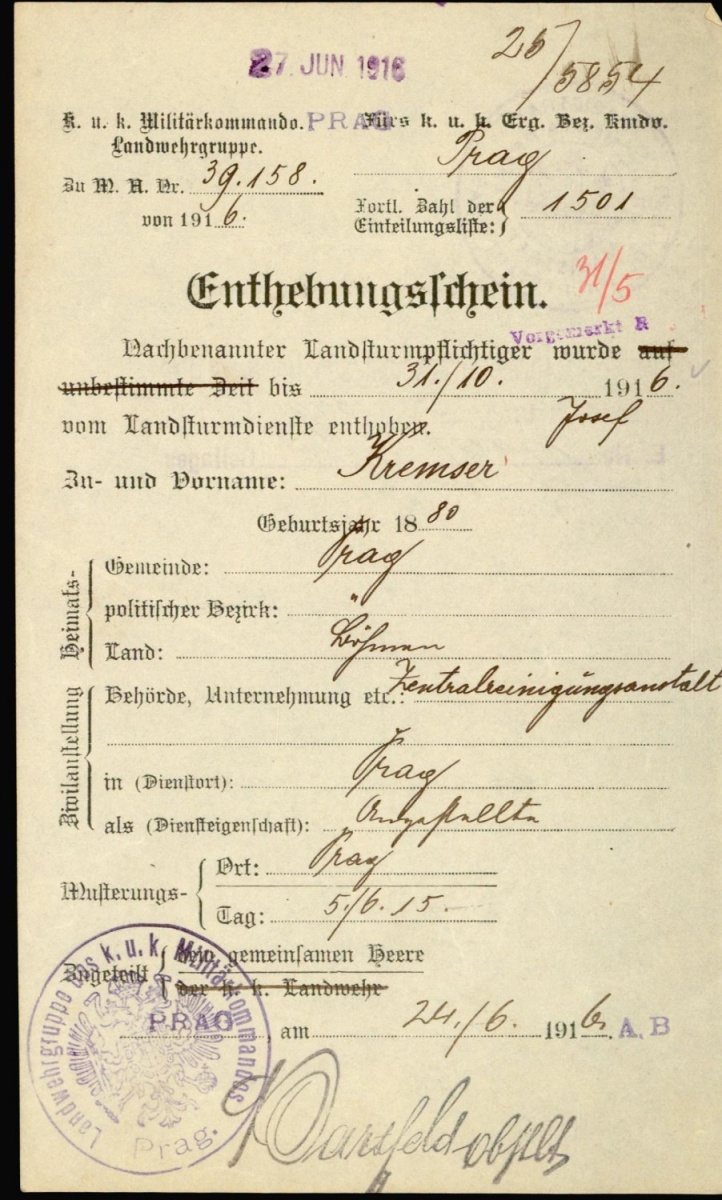 27. JUN. 1916
25/5854
K. u. k. Militärkommando. PRAG Fürs k. u. k. Erg. Bez. Kmdo.
Landwehrgruppe.
Prag
Zu M. A. Nr. 39.158.
von 1916.
Fortl. Zahl der Einteilungsliste: 1501
Enthebungsschein.
31/5
Vorgemerkt R
Nachbenannter Landsturmpflichtiger wurde auf
unbestimmte Zeit bis 31./10. 1916.
vom Landsturmdienste enthoben.
Josef
Zu- und Vorname: Kremser
Geburtsjahr 1880
Heimats-
Gemeinde: Prag
politischer Bezirk: "
Land: Böhmen
Zivilanstellung
Behörde, Unternehmung etc.: Zentralreinigungsanstalt
in (Dienstort): Prag
als (Diensteigenschaft): Angestellter
Musterungs-
Ort: Prag
Tag: 5./6. 15.
Zugeteilt
dem gemeinsamen Heere
der k. k. Landwehr
PRAG, am 24./6. 1916. A. B
Landwehrgruppe des k. u. k. Militärkommandos
Prag.